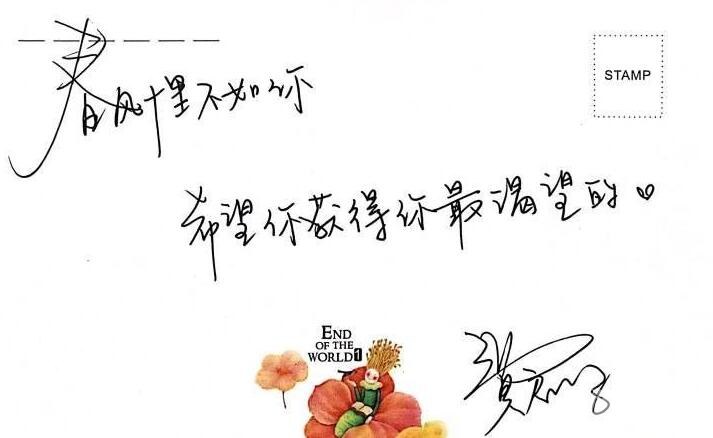 春风十里不如你
STAMP
希望你获得你最渴望的♡
END
OF THE
WORLD 1